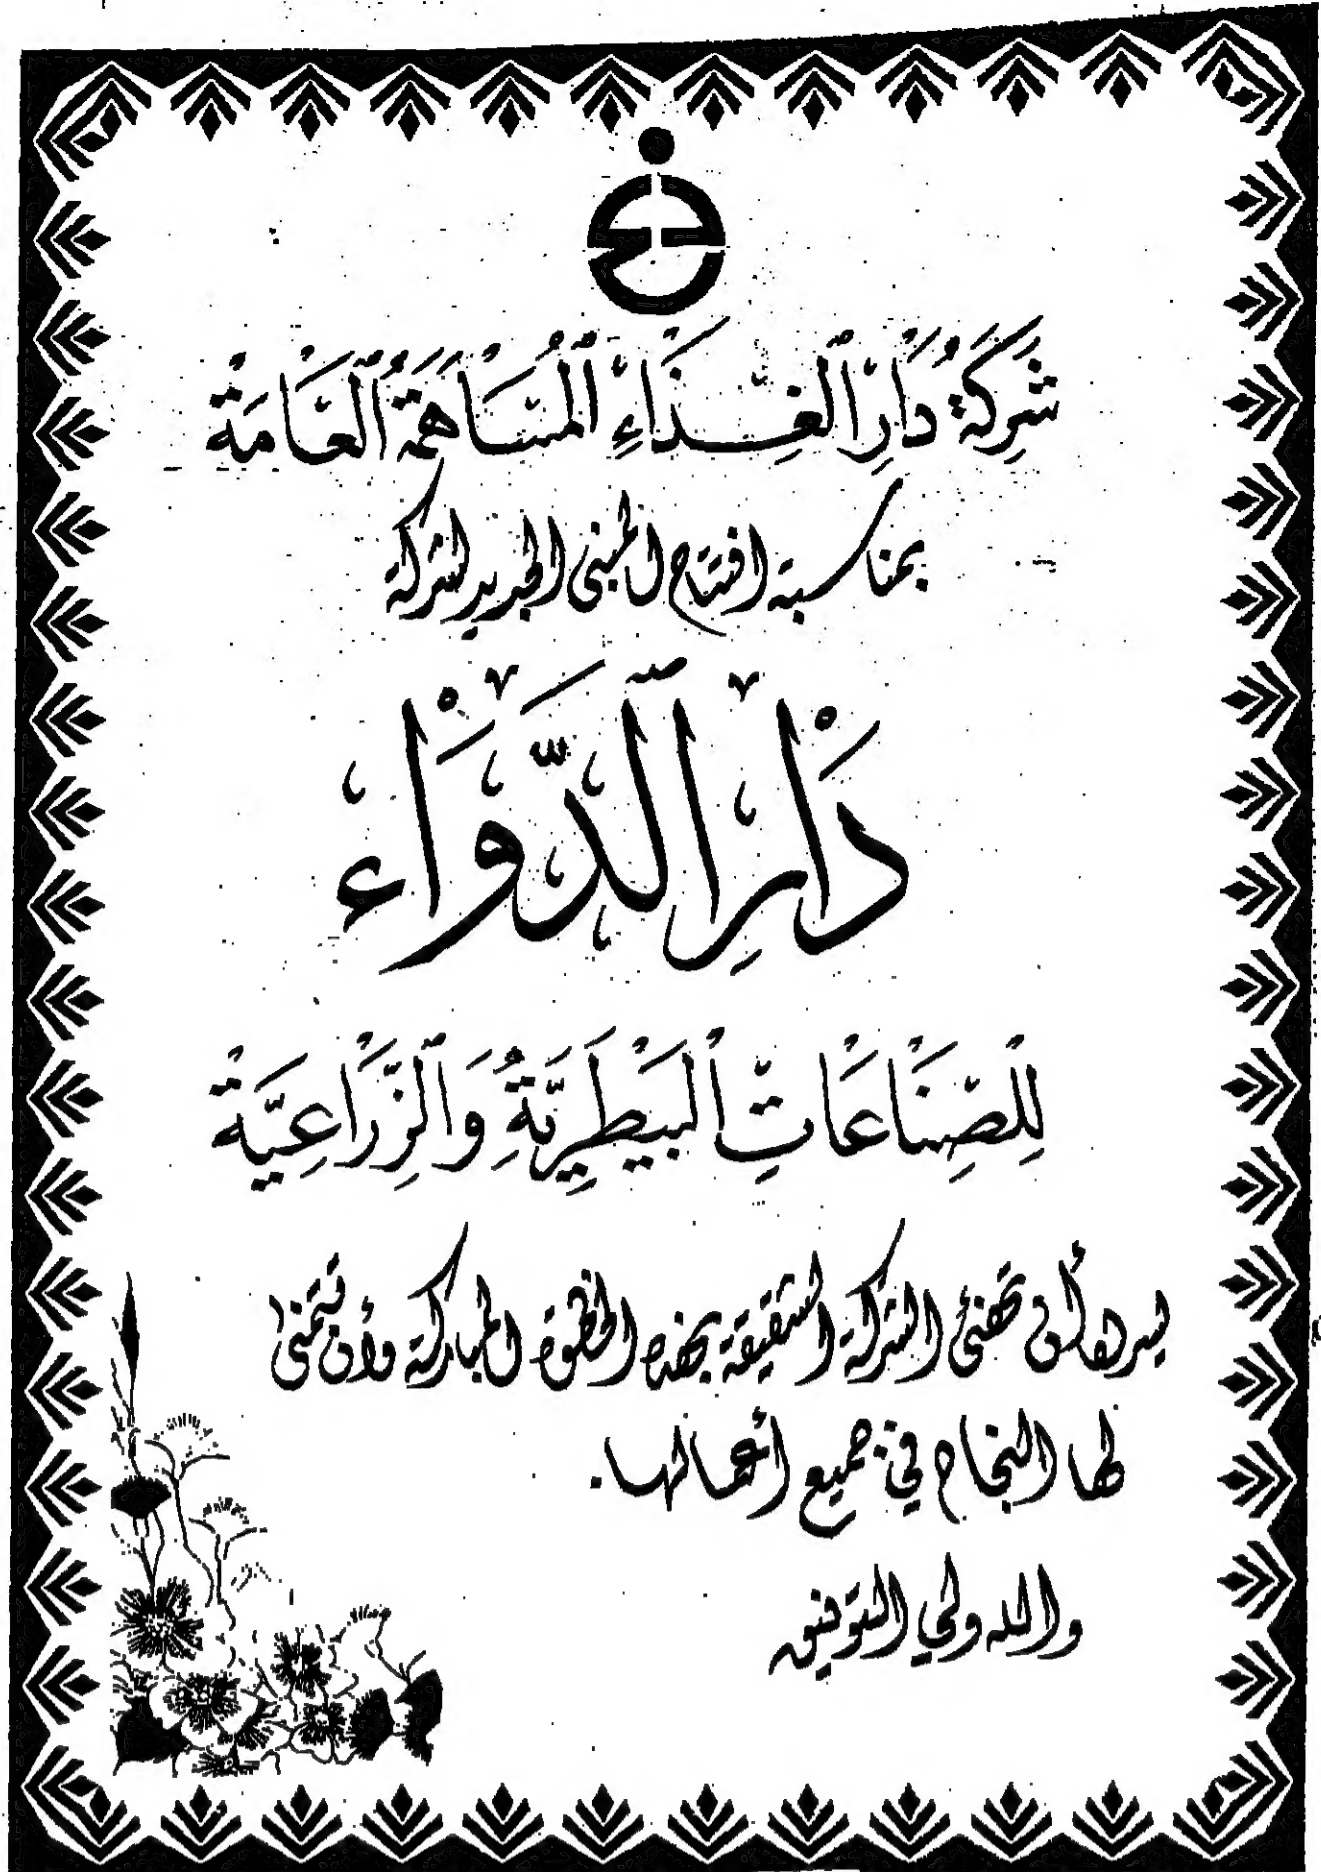 شَرِكَةُ دَارِ الْغِذَاءِ الْمُسَاهَمَةُ الْعَامَةُ
بمناسبة افتتاح المبنى الجديد لشركة
دَارِ الدَّوَاءِ
لِلصِّنَاعَاتِ الْبَيْطَرِيَّةِ وَالزِّرَاعِيَّةِ
يسرها أن تهنئ الشركة الشقيقة بهذه الخطوة المباركة وأن تتمنى
لها النجاح في جميع أعمالها.
والله ولي التوفيق